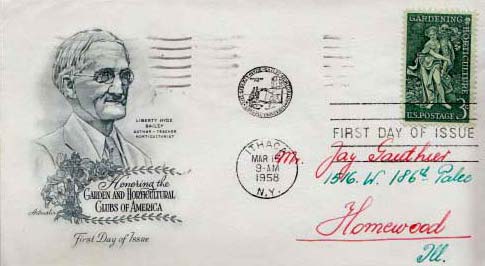 GARDENING
HORTICULTURE
U.S. POSTAGE 3¢
LIBERTY HYDE
BAILEY
AUTHOR - TEACHER
HORTICULTURIST
Honoring the
GARDEN AND HORTICULTURAL
CLUBS OF AMERICA
Artmaster
First Day of Issue
ITHACA
MAR
9-AM
1958
N.Y.
FIRST DAY OF ISSUE
Mr. Jay Gauthier
1546 W. 186th Palce
Homewood
Ill.